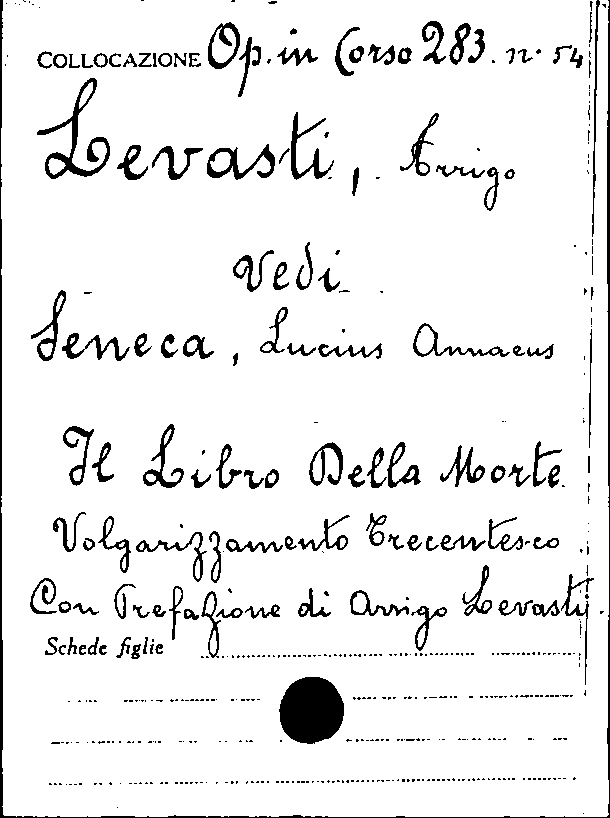 COLLOCAZIONE Op. in Corso 283. n. 54
Levasti, Arrigo
Vedi
Seneca, Lucius Annaeus
Il Libro Della Morte
Volgarizzamento Trecentesco
Con Prefazione di Arrigo Levasti.
Schede figlie